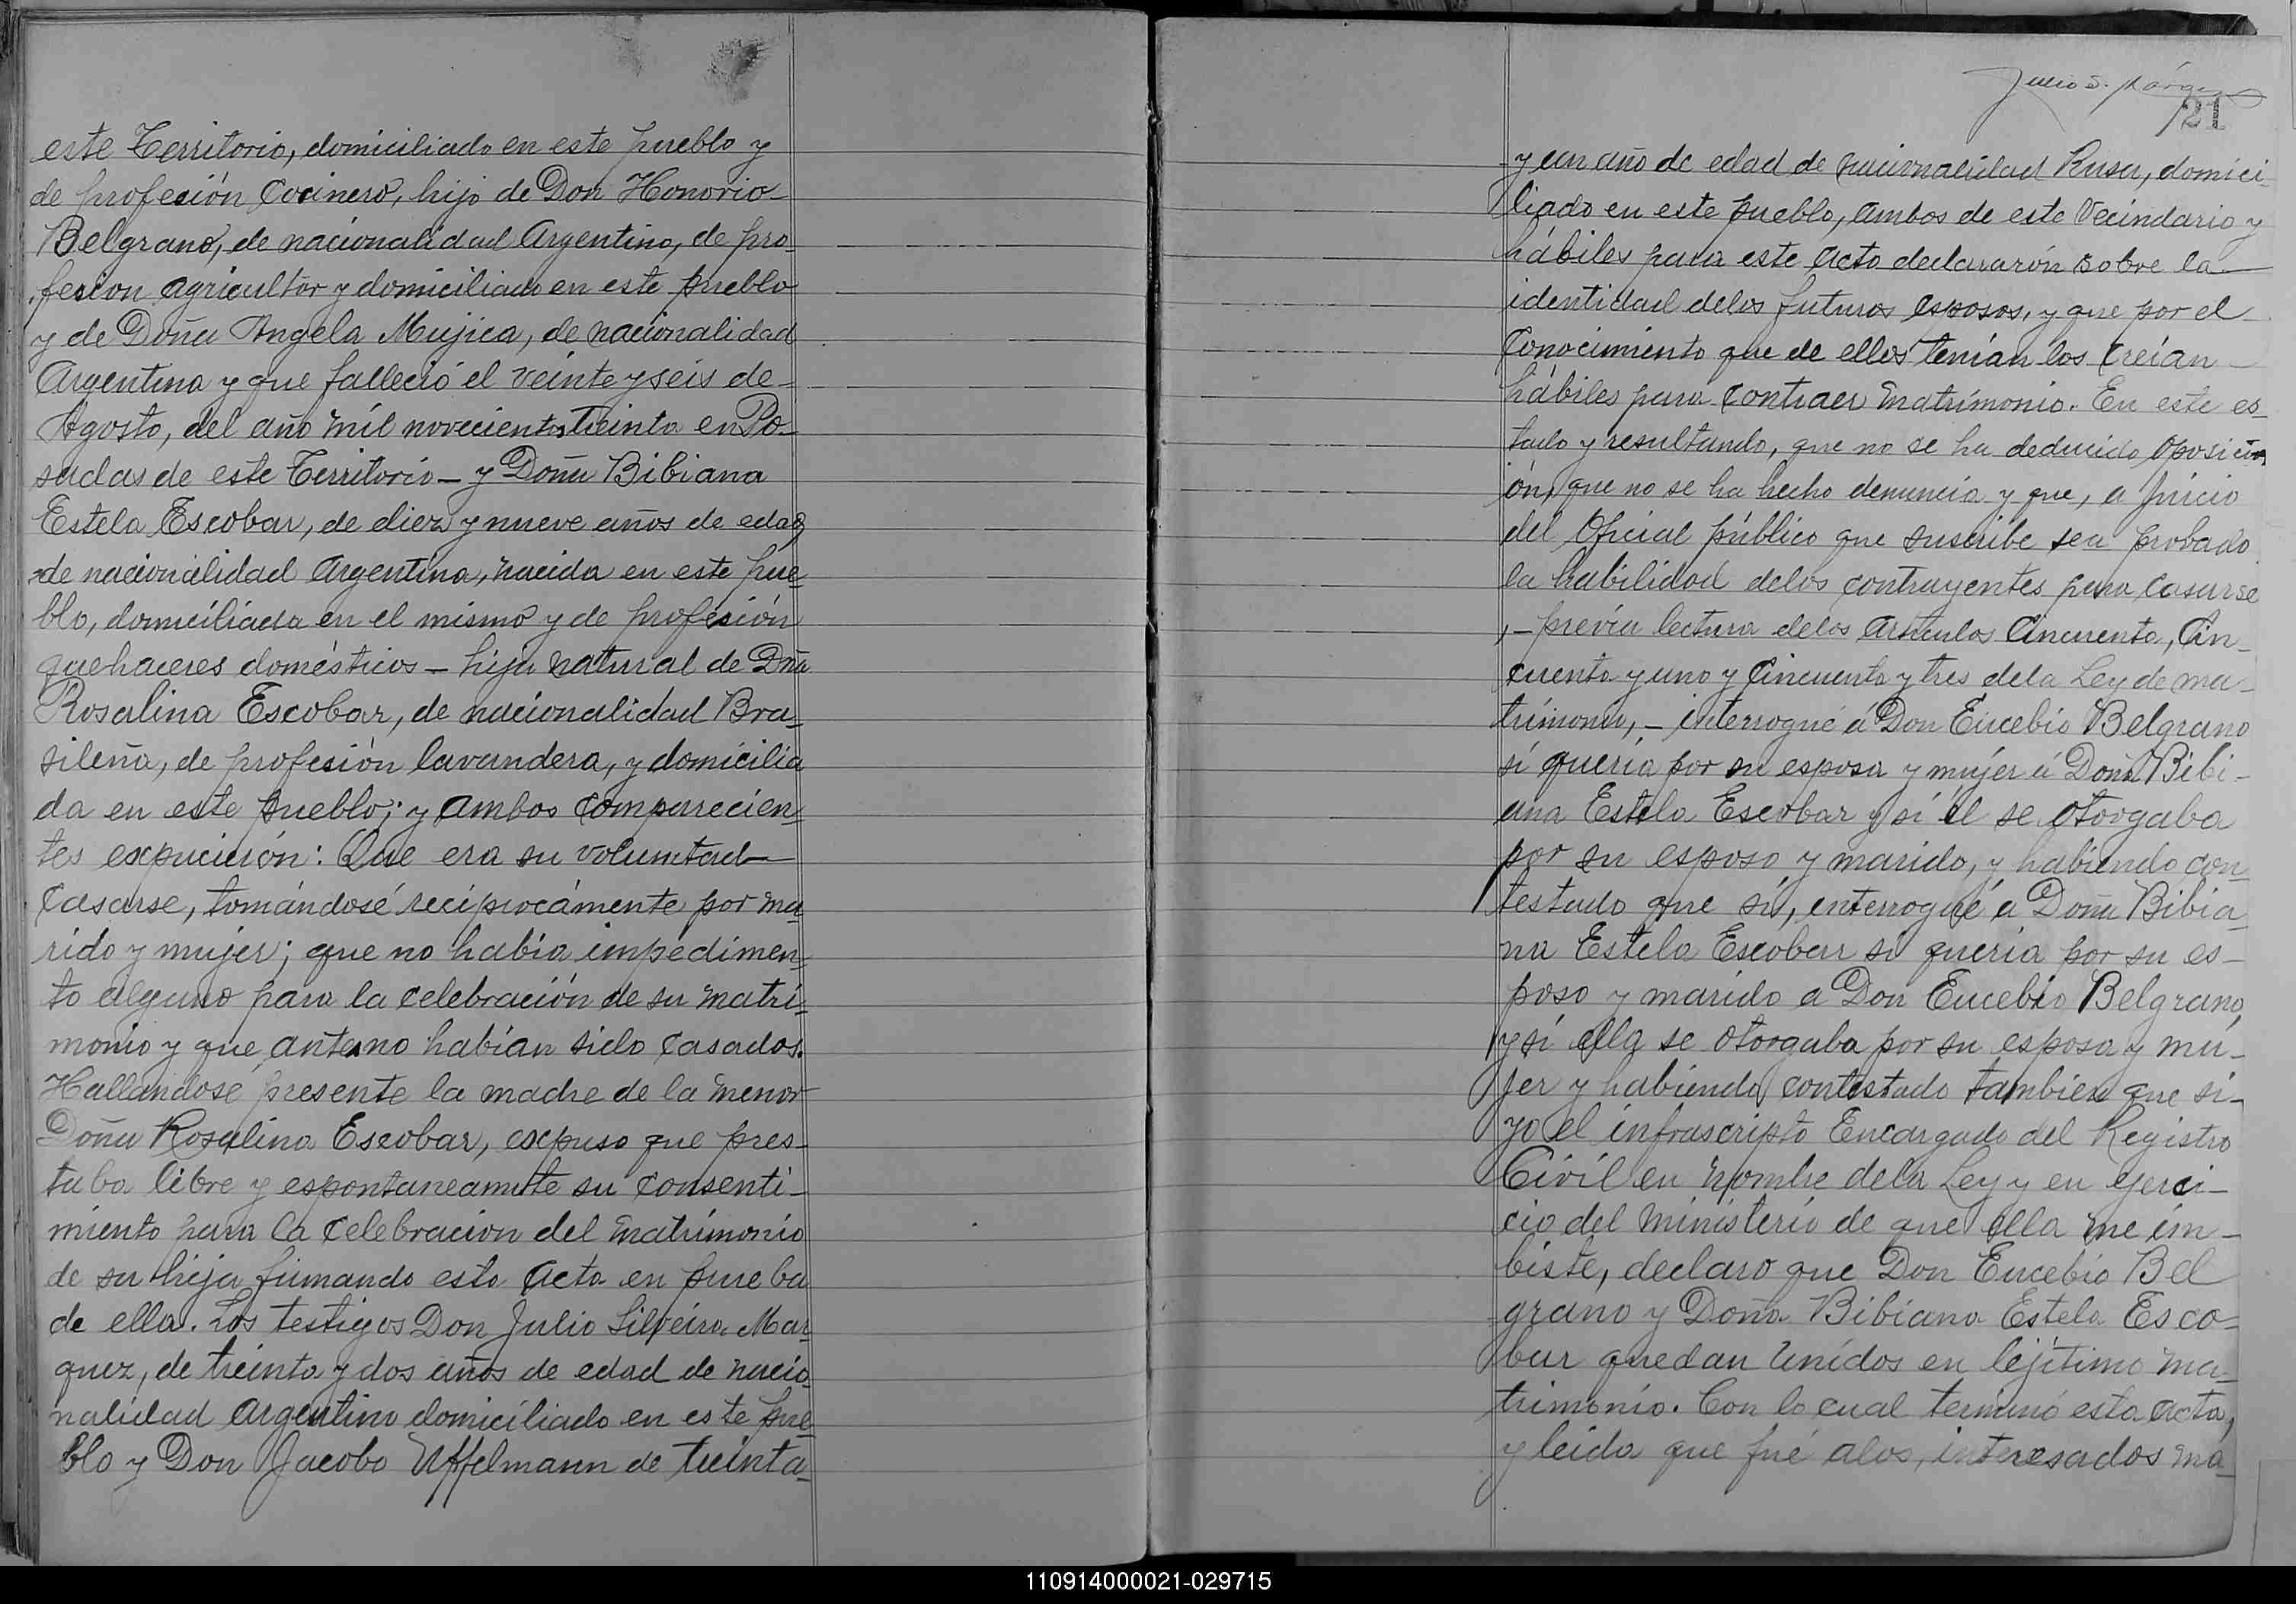 este Territorio, domiciliado en este pueblo y
de profeción Cocinero, hijo de Don Honorio-
Belgrano, de nacionalidad Argentino, de pro-
fesion agricultor y domiciliado en este pueblo
y de Doña Angela Mujica, de nacionalidad
Argentina y que falleció el veinte y seis de-
Agosto, del año mil novecientos treinta en Po-
sadas de este Territorio - y Doña Bibiana
Estela Escobar, de diez y nueve años de edad,
de nacionalidad Argentina, nacida en este pue-
blo, domiciliada en el mismo y de profesión
quehaceres domésticos - hija natural de Dña
Rosalina Escobar, de nacionalidad Bra-
sileña, de profesión lavandera, y domicilia
da en este pueblo; y ambos comparecien-
tes expucierón: Que era su voluntad
casarse, tomándosé recíprocámente por ma-
rido y mujer; que no había impedimen-
to alguno para la celebración de su matri-
monio y que antes no habían sido casados.
Hallandose presente la madre de la menor
Doña Rosalina Escobar, expuso que pres-
taba libre y espontaneamnte su consenti-
miento para la celebracion del matrimonio
de su hija firmando esta acta en prueba
de ella. Los testigos Don Julio Silveira Mar-
quez, de treinta y dos años de edad de nacio-
nalidad Argentino domiciliado en este pue-
blo y Don Jacobo Uffelmann de treinta-
Julio S. Márquez
21
y un año de edad de nacionalidad Rusa, domici-
liado en este pueblo, ambos de este Vecindario y
hábiles para este acto declararón sobre la
identidad delos futuros esposos, y que por el
conocimiento que de ellos tenían los creían
hábiles para contraer matrimonio. En este es-
tado y resultando, que no se ha deducido oposici
ón, que no se ha hecho denuncia y que, a juicio
del Oficial público que suscribe sea probado
la habilidad delos contrayentes para casarse
,- previa lectura delos artículos Cincuenta, Cin-
cuenta y uno y Cincuenta y tres dela Ley de ma-
trimonio, - interrogué á Don Eucebio Belgrano
sí quería por su esposa y mujer á Doña Bibi-
ana Estela Escobar y si él se otorgaba
por su esposo y marido, y habiendo con-
testado que sí, interrogué a Doña Bibia-
na Estela Escobar si queria por su es-
poso y marido a Don Eucebio Belgrano,
y si ella se otorgaba por su esposa y mu-
jer y habiendo contestado tambien que si-
yo el infrascripto Encargado del Registro
Civil en nombre dela Ley y en ejerci-
cio del ministerio de que ella me im-
biste, declaro que Don Eucebio Bel
grano y Doña Bibiana Estela Esco-
bar quedan unidos en lejítimo ma-
trimonio. Con lo cual terminó esta acta,
y leída que fué alos, interesados ma-
110914000021-029715